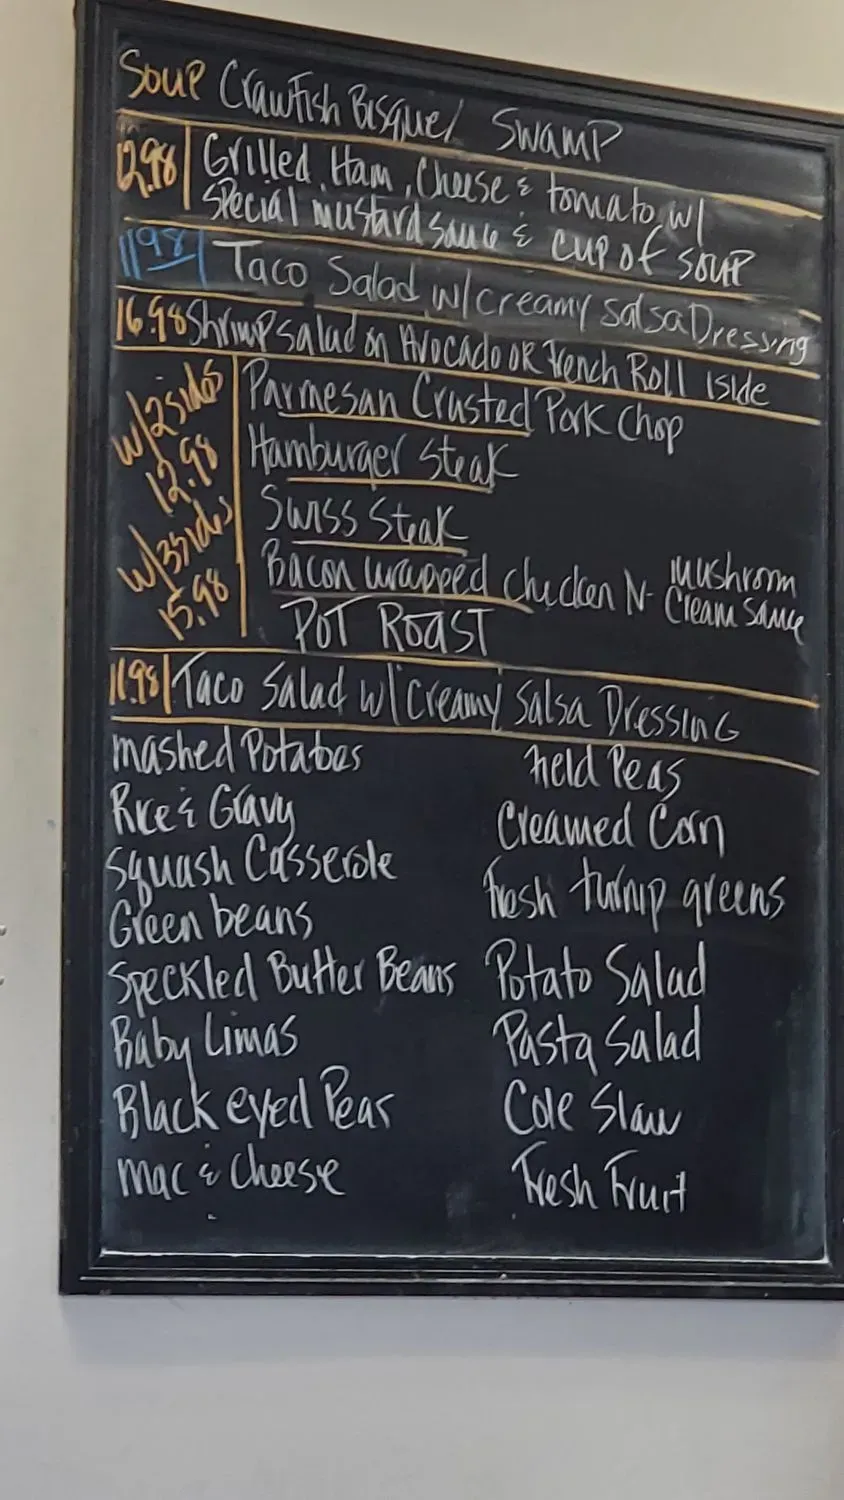 Soup Crawfish Bisque/ Swamp
12.98 Grilled Ham, Cheese & tomato w/
special mustard sauce & cup of soup
11.98 Taco Salad w/creamy salsa Dressing
16.98 Shrimp Salad on Avocado OR French Roll 1side
w/2 sides
12.98
w/3 sides
15.98
Parmesan Crusted Pork Chop
Hamburger Steak
Swiss Steak
Bacon wrapped chicken N- Mushroom
Cream Sauce
POT ROAST
11.98 Taco Salad w/Creamy Salsa Dressing
Mashed Potatoes
Rice & Gravy
Squash Casserole
Green beans
Speckled Butter Beans
Baby Limas
Black eyed Peas
Mac & Cheese
Field Peas
Creamed Corn
Fresh turnip greens
Potato Salad
Pasta Salad
Cole Slaw
Fresh Fruit